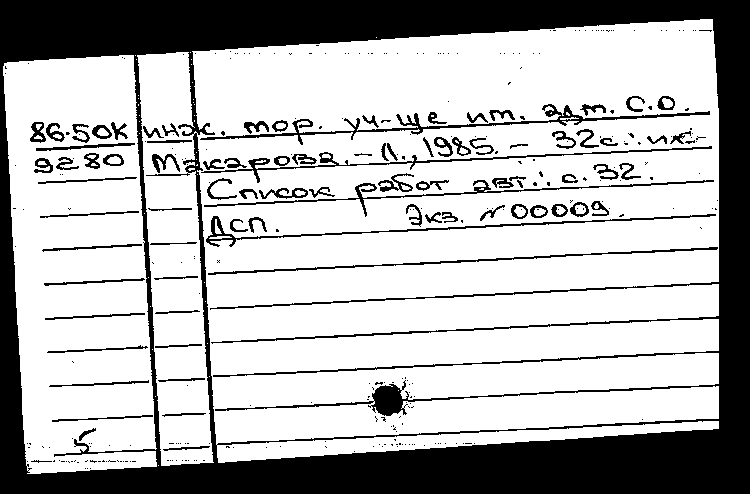 86-50К инж. мор. уч-ще им. адм. С.О.
9280 Макарова. - Л., 1985. - 32с.: ил.-
Список работ авт.: с. 32.
ДСП. Экз. №00009.
5